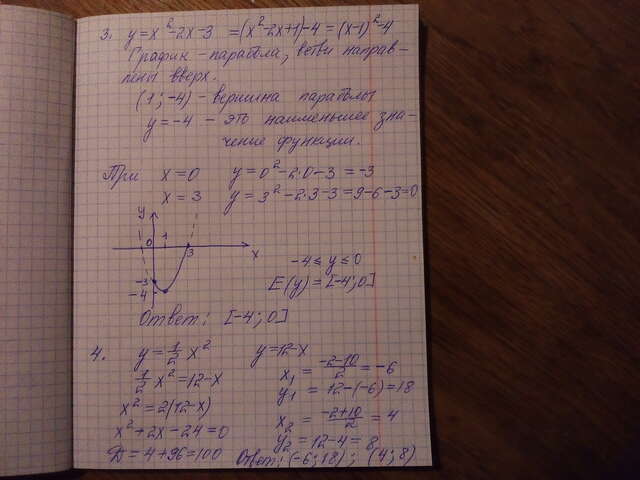 3. y = x² - 2x - 3 = (x² - 2x + 1) - 4 = (x - 1)² - 4
График - парабола, ветви направ-
лены вверх.
(1; -4) - вершина параболы
y = -4 - это наименьшее зна-
чение функции.
При x = 0 y = 0² - 2·0 - 3 = -3
x = 3 y = 3² - 2·3 - 3 = 9 - 6 - 3 = 0
y
0 1 3 x
-3
-4
-4 ≤ y ≤ 0
E(y) = [-4; 0]
Ответ: [-4; 0]
4. y = 1/2 x² y = 12 - x
1/2 x² = 12 - x
x² = 2(12 - x)
x² + 2x - 24 = 0
D = 4 + 96 = 100
x₁ = (-2-10)/2 = -6
y₁ = 12 - (-6) = 18
x₂ = (-2+10)/2 = 4
y₂ = 12 - 4 = 8
Ответ: (-6; 18); (4; 8)